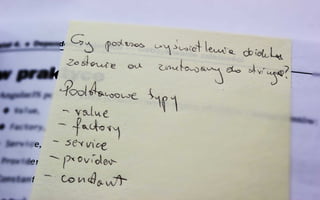 Czy podczas wyświetlenia obiektu
zostanie on zmutowany do stringa?
Podstawowe typy
- value
- factory
- service
- provider
- constant
w prak
AngularJS po
Value,
Factory,
Service,
Provider
Constant